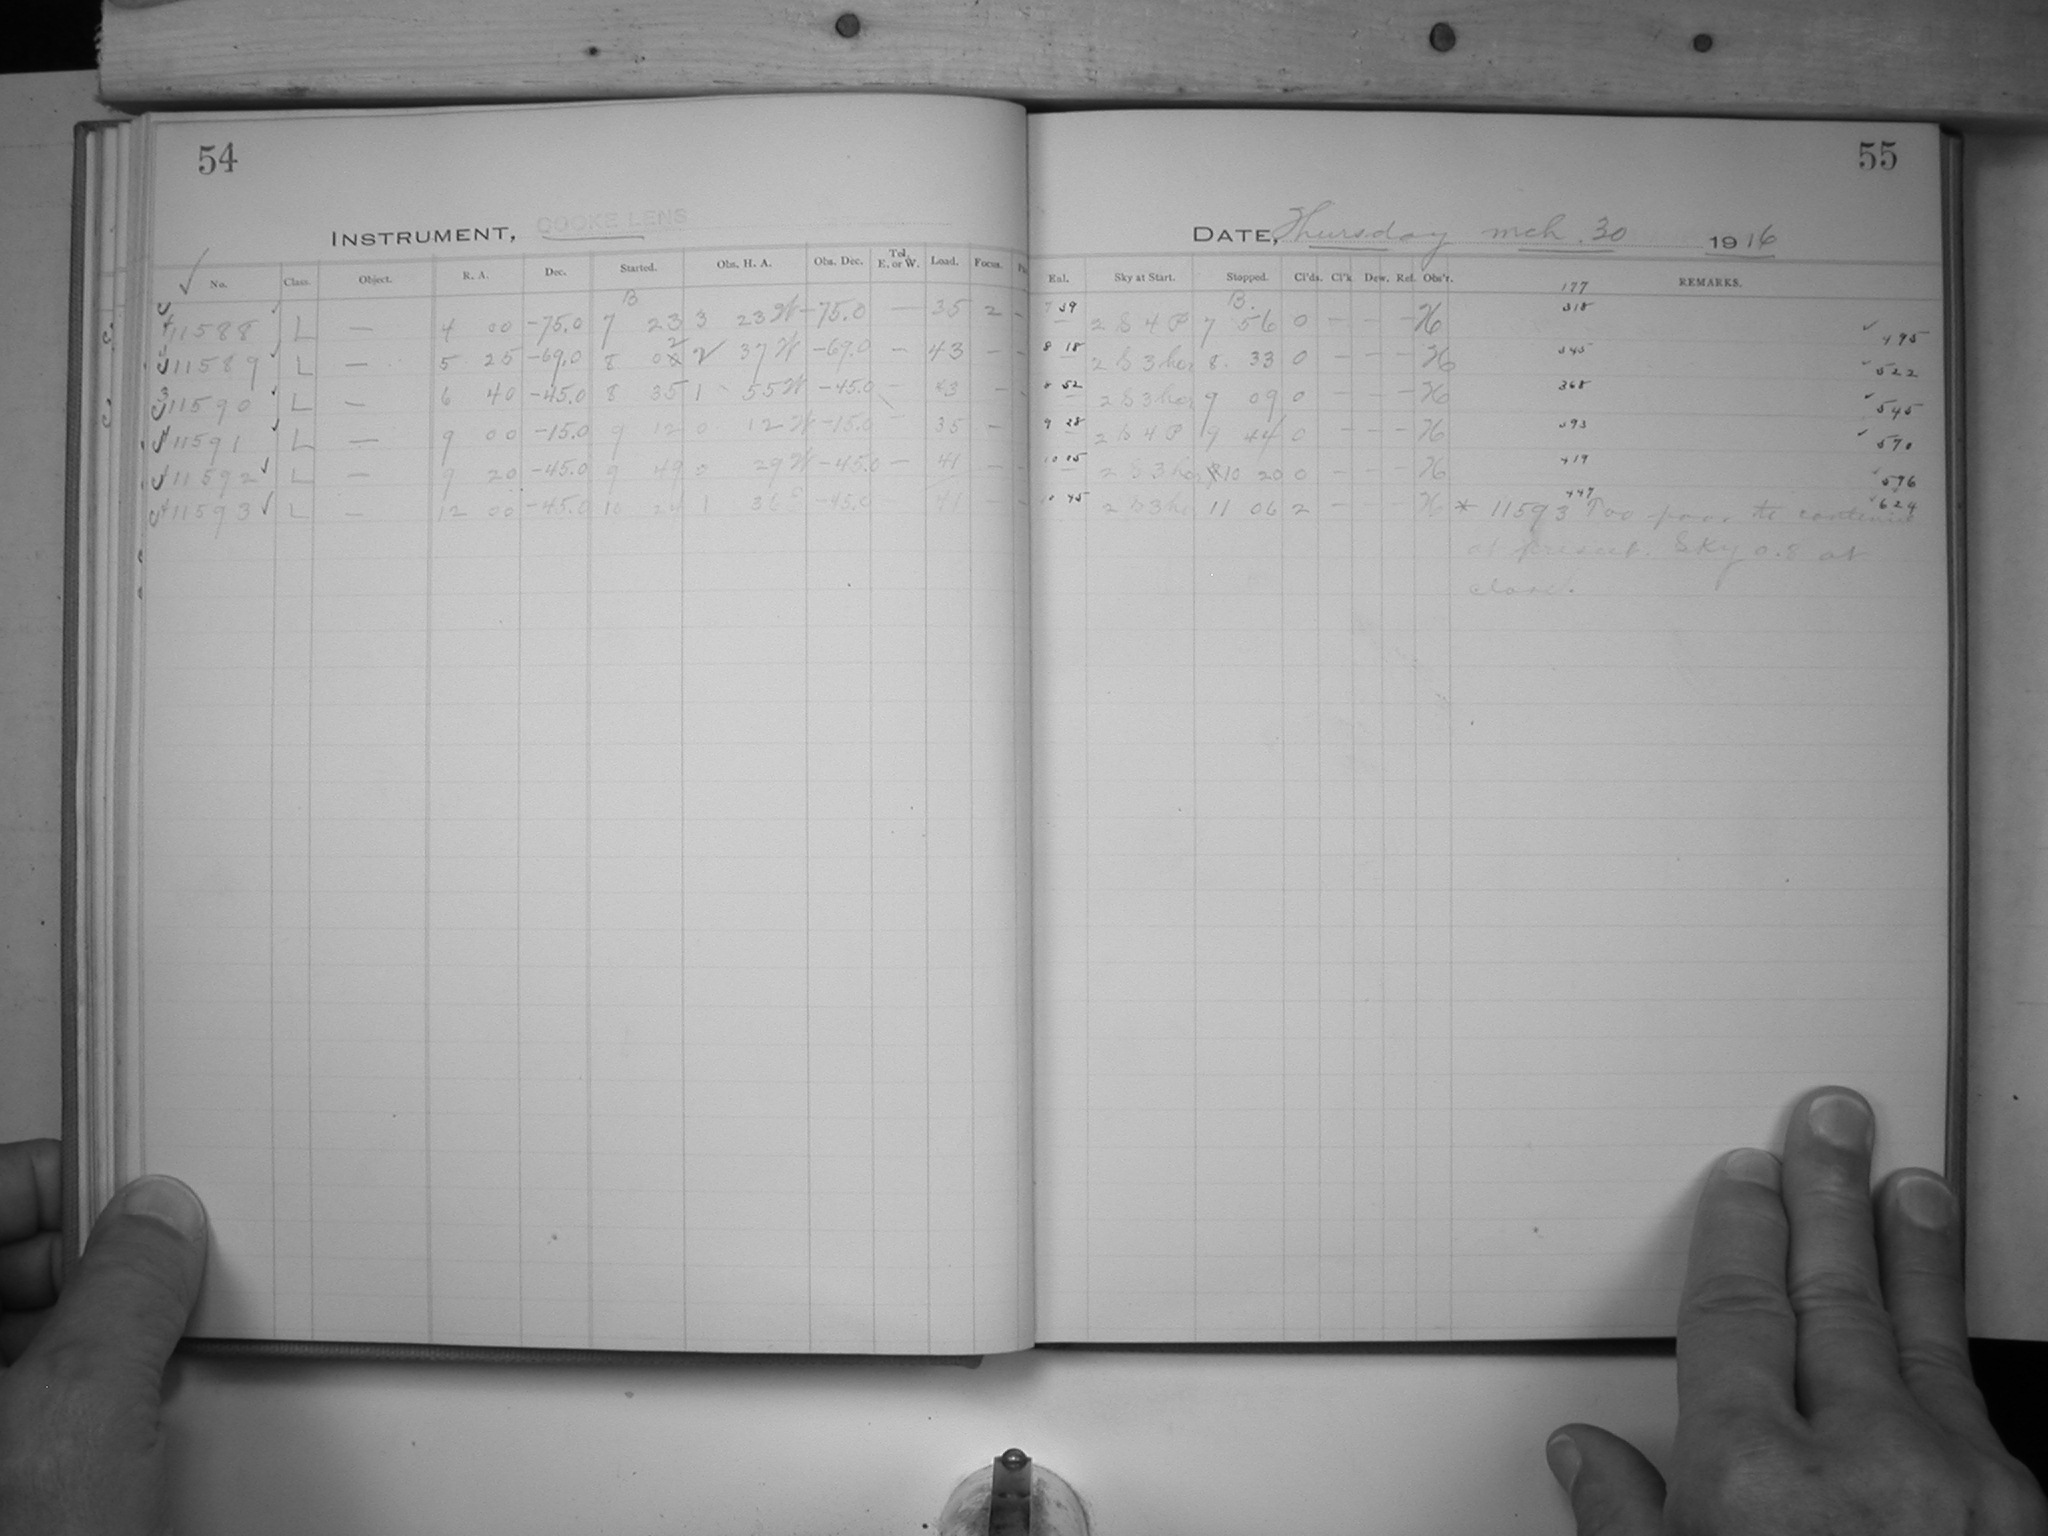 54
INSTRUMENT, COOKE LENS
No. Class. Object. R. A. Dec. Started. Obs. H. A. Obs. Dec. Tel. E. or W. Load. Focus.
B
11588 L — 4 00 -75.0 7 23 3 23 W -75.0 — 35 2 -
11589 L — 5 25 -69.0 8 02 2 37 W -69.0 — 43 - -
11590 L — 6 40 -45.0 8 35 1 55 W -45.0 — 43 - -
11591 L — 9 00 -15.0 9 12 0 12 W -15.0 — 35 -
11592 L — 9 20 -45.0 9 49 0 29 W -45.0 — 41 - -
11593 L — 12 00 -45.0 10 24 1 36 E -45.0 41 - -
55
DATE, Thursday mch. 30 1916
Enl. Sky at Start. Stopped. Cl'ds. Cl'k. Dew. Ref. Obs'r. REMARKS.
177
B.
7 39 2 S 4 P 7 56 0 - - - H 318 495
8 18 2 S 3 hos 8 33 0 - - - H 345 522
8 52 2 S 3 hos 9 09 0 - - - H 368 545
9 28 2 S 4 P 9 44 0 - - - H 393 570
10 05 2 S 3 hos 10 20 0 - - - H 419 596
10 45 2 S 3 h 11 06 2 - - - H 447 624
* 11593 Too poor to continue
at present. Sky 0.8 at
close.